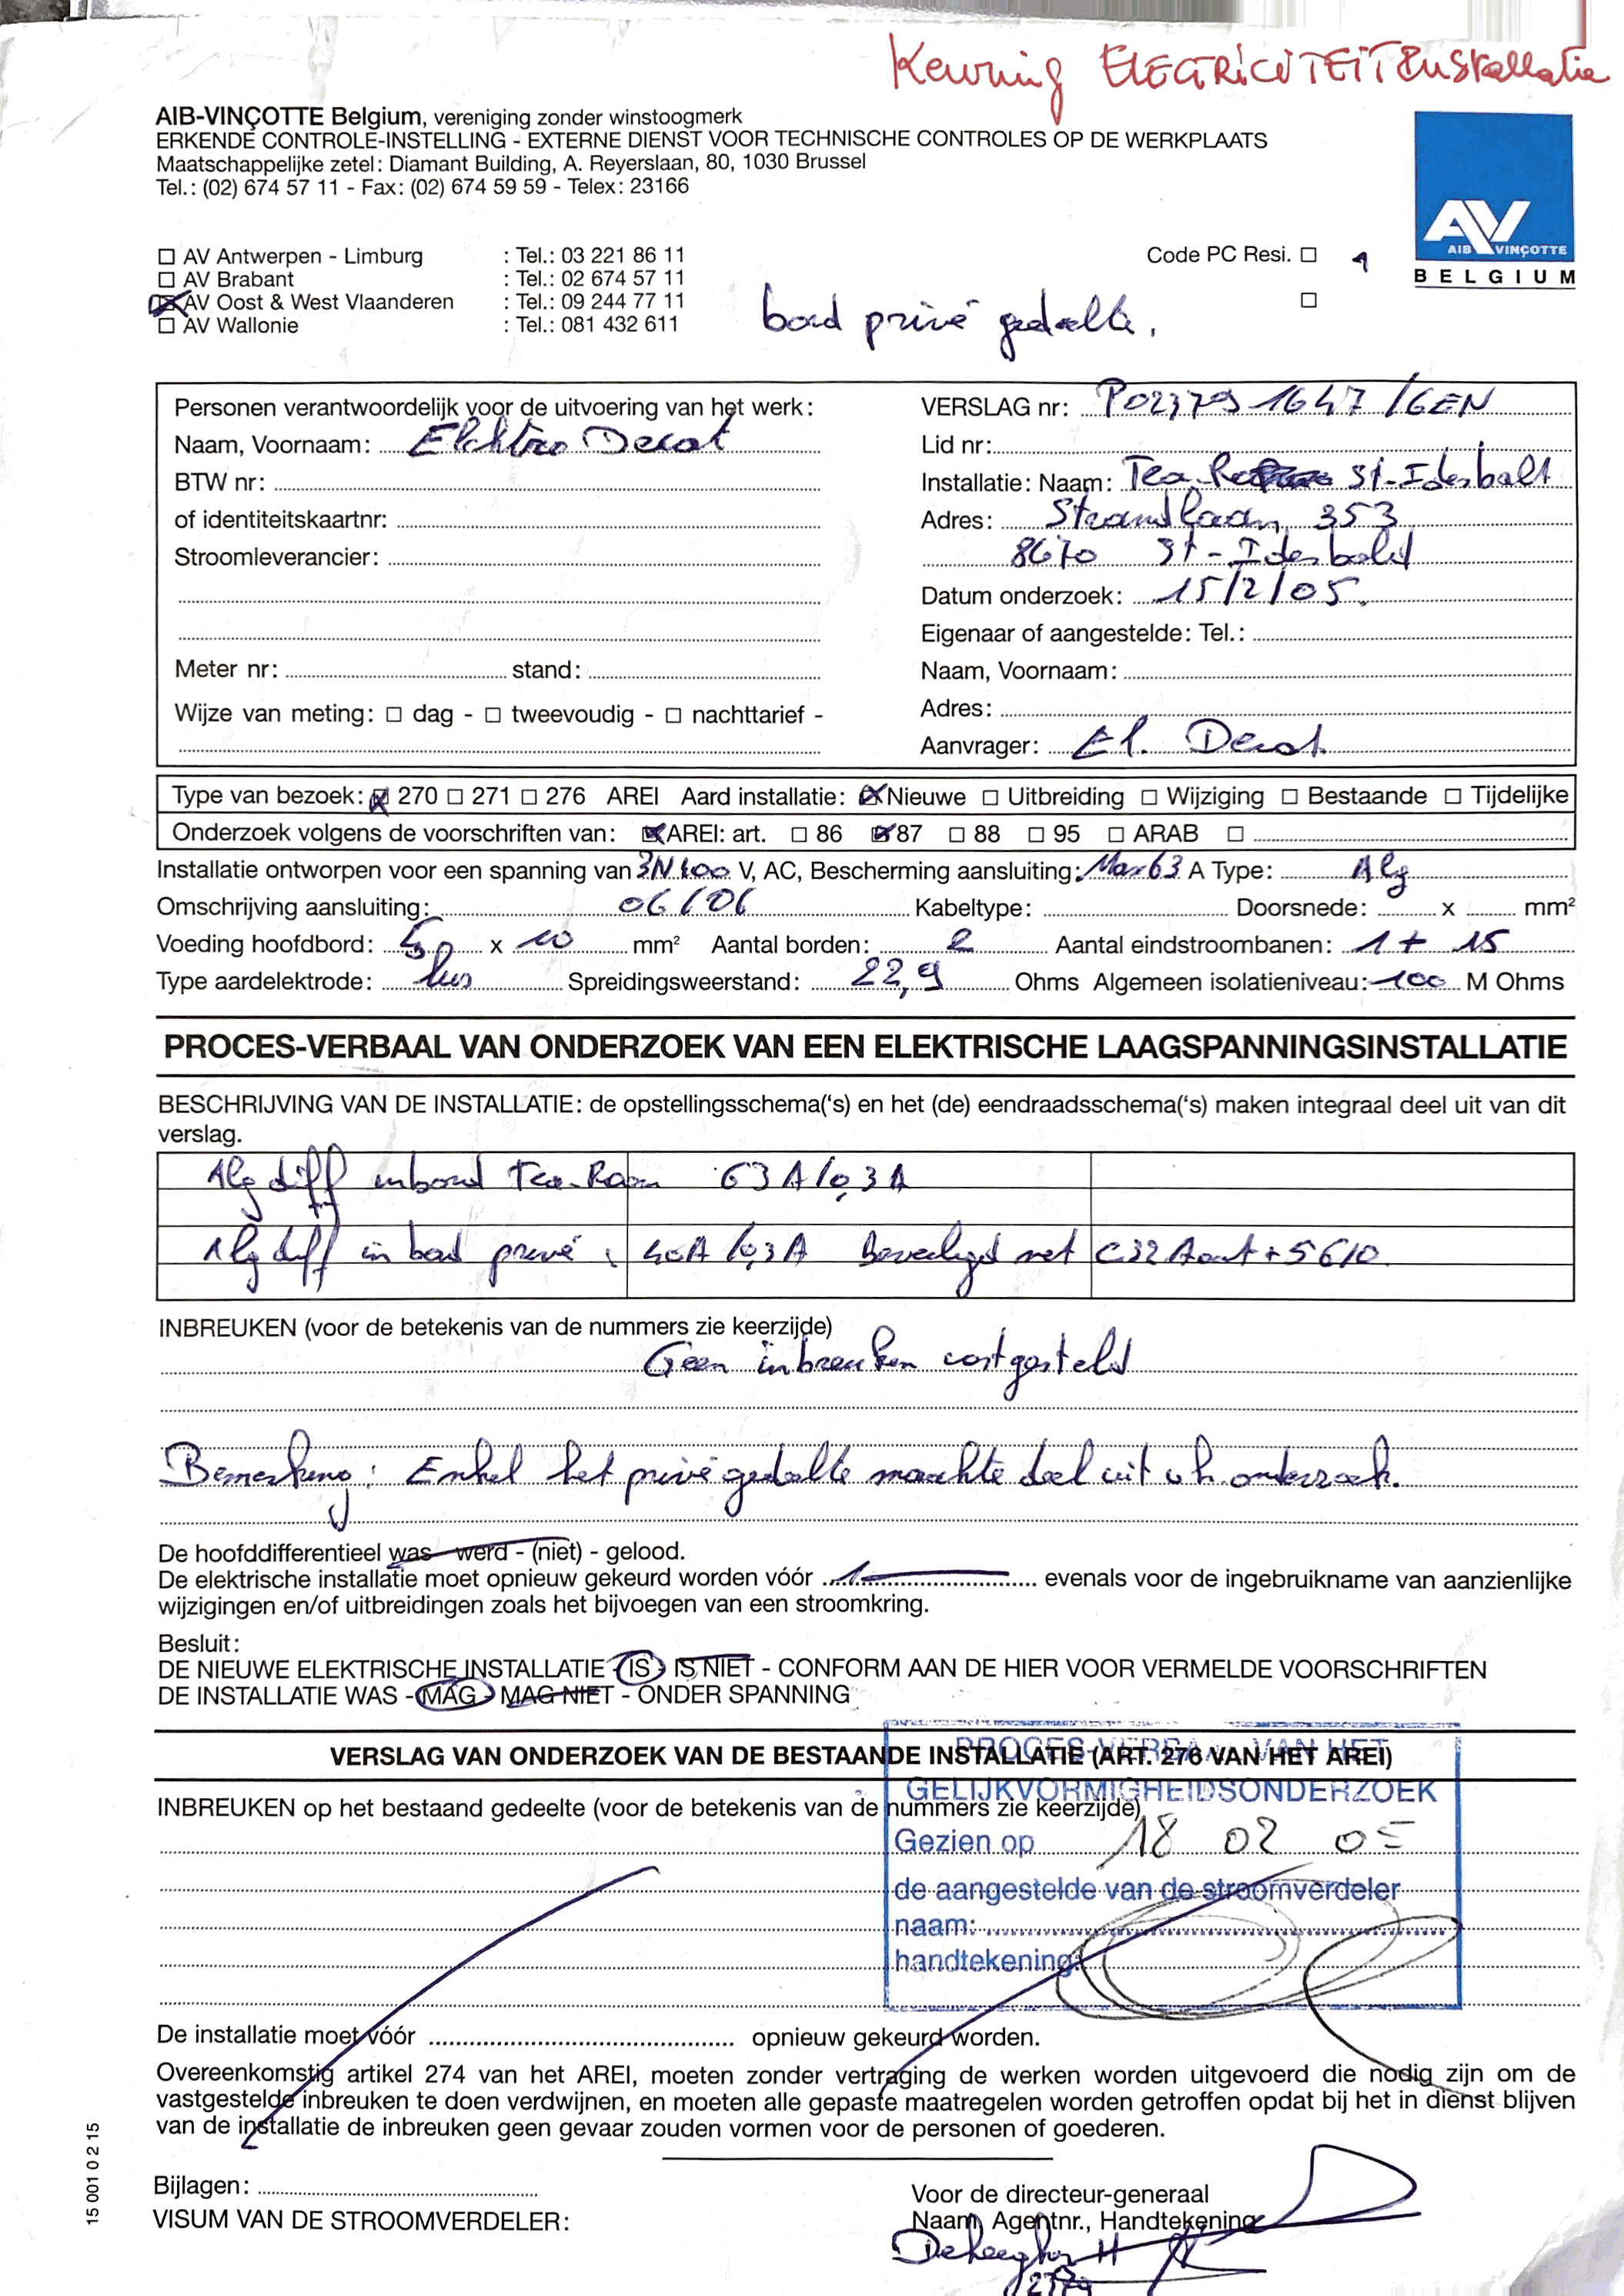 Keuring ELECTRICITEITSinstallatie
AIB-VINÇOTTE Belgium, vereniging zonder winstoogmerk
ERKENDE CONTROLE-INSTELLING - EXTERNE DIENST VOOR TECHNISCHE CONTROLES OP DE WERKPLAATS
Maatschappelijke zetel: Diamant Building, A. Reyerslaan, 80, 1030 Brussel
Tel.: (02) 674 57 11 - Fax: (02) 674 59 59 - Telex: 23166
AV
AIB VINÇOTTE
BELGIUM
☐ AV Antwerpen - Limburg : Tel.: 03 221 86 11
☐ AV Brabant : Tel.: 02 674 57 11
☒ AV Oost & West Vlaanderen : Tel.: 09 244 77 11
☐ AV Wallonie : Tel.: 081 432 611
Code PC Resi. ☐ 1
☐
bord privé gedeelte.
Personen verantwoordelijk voor de uitvoering van het werk:
Naam, Voornaam: Elektro Decat
BTW nr:
of identiteitskaartnr:
Stroomleverancier:
Meter nr: stand:
Wijze van meting: ☐ dag - ☐ tweevoudig - ☐ nachttarief -
VERSLAG nr: P02379 1647 /GEN
Lid nr:
Installatie: Naam: Tea-Room St-Idesbald
Adres: Strandlaan 353
8670 St-Idesbald
Datum onderzoek: 15/2/05.
Eigenaar of aangestelde: Tel.:
Naam, Voornaam:
Adres:
Aanvrager: El. Decat
Type van bezoek: ☒ 270 ☐ 271 ☐ 276 AREI Aard installatie: ☒ Nieuwe ☐ Uitbreiding ☐ Wijziging ☐ Bestaande ☐ Tijdelijke
Onderzoek volgens de voorschriften van: ☒ AREI: art. ☐ 86 ☒ 87 ☐ 88 ☐ 95 ☐ ARAB ☐
Installatie ontworpen voor een spanning van 3N400 V, AC, Bescherming aansluiting: Max 63 A Type: Alg
Omschrijving aansluiting: 06/06 Kabeltype: Doorsnede: x mm²
Voeding hoofdbord: 5 x 10 mm² Aantal borden: 2 Aantal eindstroombanen: 1 + 15
Type aardelektrode: lus Spreidingsweerstand: 22,9 Ohms Algemeen isolatieniveau: 100 M Ohms
PROCES-VERBAAL VAN ONDERZOEK VAN EEN ELEKTRISCHE LAAGSPANNINGSINSTALLATIE
BESCHRIJVING VAN DE INSTALLATIE: de opstellingsschema('s) en het (de) eendraadsschema('s) maken integraal deel uit van dit
verslag.
Alg diff in bord Tea-Room 63 A/0,3 A
Alg diff in bord privé : 40A/0,3A Beveiligd met C32 Aaut + 5G10
INBREUKEN (voor de betekenis van de nummers zie keerzijde)
Geen inbreuken vastgesteld
Bemerking: Enkel het privé gedeelte maakte deel uit v h onderzoek.
De hoofddifferentieel was - werd - (niet) - gelood.
De elektrische installatie moet opnieuw gekeurd worden vóór evenals voor de ingebruikname van aanzienlijke
wijzigingen en/of uitbreidingen zoals het bijvoegen van een stroomkring.
Besluit:
DE NIEUWE ELEKTRISCHE INSTALLATIE - IS - IS NIET - CONFORM AAN DE HIER VOOR VERMELDE VOORSCHRIFTEN
DE INSTALLATIE WAS - MAG - MAG NIET - ONDER SPANNING
VERSLAG VAN ONDERZOEK VAN DE BESTAANDE INSTALLATIE (ART. 276 VAN HET AREI)
PROCES-VERBAAL VAN HET
GELIJKVORMIGHEIDSONDERZOEK
INBREUKEN op het bestaand gedeelte (voor de betekenis van de nummers zie keerzijde)
Gezien op 18 02 05
de aangestelde van de stroomverdeler
naam:
handtekening:
De installatie moet vóór opnieuw gekeurd worden.
Overeenkomstig artikel 274 van het AREI, moeten zonder vertraging de werken worden uitgevoerd die nodig zijn om de
vastgestelde inbreuken te doen verdwijnen, en moeten alle gepaste maatregelen worden getroffen opdat bij het in dienst blijven
van de installatie de inbreuken geen gevaar zouden vormen voor de personen of goederen.
Bijlagen:
VISUM VAN DE STROOMVERDELER:
Voor de directeur-generaal
Naam, Agentnr., Handtekening
15 001 0 2 15